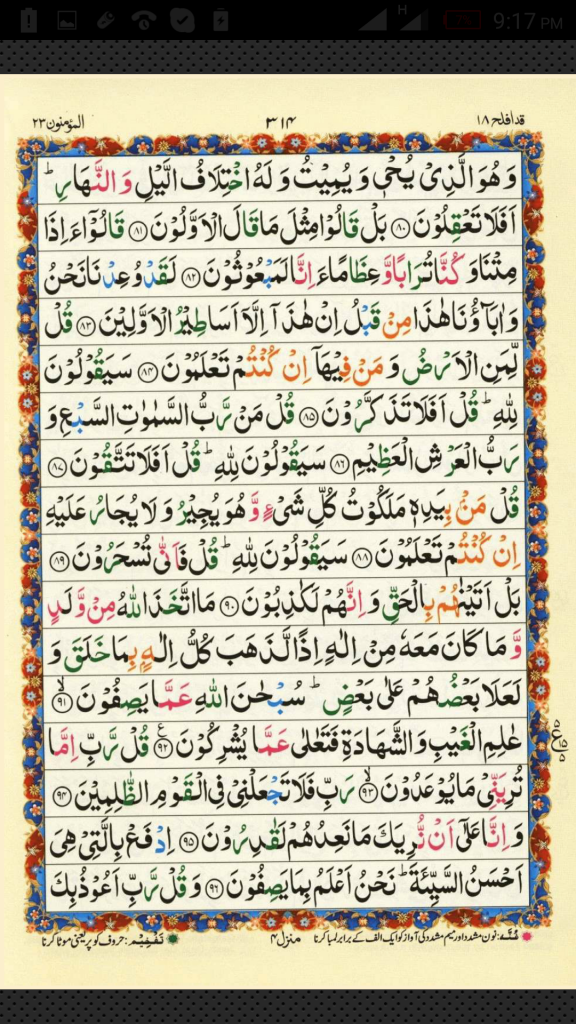 H 7% 9:17 PM
قد افلح ١٨ ٣١٤ المؤمنون ٢٣
وَ هُوَ الَّذِیْ یُحْیٖ وَ یُمِیْتُ وَ لَهُ اخْتِلَافُ الَّیْلِ وَ النَّهَارِ ؕ
اَفَلَا تَعْقِلُوْنَ ﴿۸۰﴾ بَلْ قَالُوْا مِثْلَ مَا قَالَ الْاَوَّلُوْنَ ﴿۸۱﴾ قَالُوْۤا ءَاِذَا
مِتْنَا وَ كُنَّا تُرَابًا وَّ عِظَامًا ءَاِنَّا لَمَبْعُوْثُوْنَ ﴿۸۲﴾ لَقَدْ وُعِدْنَا نَحْنُ
وَ اٰبَآؤُنَا هٰذَا مِنْ قَبْلُ اِنْ هٰذَاۤ اِلَّاۤ اَسَاطِیْرُ الْاَوَّلِیْنَ ﴿۸۳﴾ قُلْ
لِّمَنِ الْاَرْضُ وَ مَنْ فِیْهَاۤ اِنْ كُنْتُمْ تَعْلَمُوْنَ ﴿۸۴﴾ سَیَقُوْلُوْنَ
لِلّٰهِ ؕ قُلْ اَفَلَا تَذَكَّرُوْنَ ﴿۸۵﴾ قُلْ مَنْ رَّبُّ السَّمٰوٰتِ السَّبْعِ وَ
رَبُّ الْعَرْشِ الْعَظِیْمِ ﴿۸۶﴾ سَیَقُوْلُوْنَ لِلّٰهِ ؕ قُلْ اَفَلَا تَتَّقُوْنَ ﴿۸۷﴾
قُلْ مَنْۢ بِیَدِهٖ مَلَكُوْتُ كُلِّ شَیْءٍ وَّ هُوَ یُجِیْرُ وَ لَا یُجَارُ عَلَیْهِ
اِنْ كُنْتُمْ تَعْلَمُوْنَ ﴿۸۸﴾ سَیَقُوْلُوْنَ لِلّٰهِ ؕ قُلْ فَاَنّٰی تُسْحَرُوْنَ ﴿۸۹﴾
بَلْ اَتَیْنٰهُمْ بِالْحَقِّ وَ اِنَّهُمْ لَكٰذِبُوْنَ ﴿۹۰﴾ مَا اتَّخَذَ اللّٰهُ مِنْ وَّلَدٍ
وَّ مَا كَانَ مَعَهٗ مِنْ اِلٰهٍ اِذًا لَّذَهَبَ كُلُّ اِلٰهٍۭ بِمَا خَلَقَ وَ
لَعَلَا بَعْضُهُمْ عَلٰی بَعْضٍ ؕ سُبْحٰنَ اللّٰهِ عَمَّا یَصِفُوْنَ ﴿ۙ۹۱﴾
عٰلِمِ الْغَیْبِ وَ الشَّهَادَةِ فَتَعٰلٰی عَمَّا یُشْرِكُوْنَ ﴿۹۲﴾ قُلْ رَّبِّ اِمَّا
تُرِیَنِّیْ مَا یُوْعَدُوْنَ ﴿ۙ۹۳﴾ رَبِّ فَلَا تَجْعَلْنِیْ فِی الْقَوْمِ الظّٰلِمِیْنَ ﴿۹۴﴾
وَ اِنَّا عَلٰۤی اَنْ نُّرِیَكَ مَا نَعِدُهُمْ لَقٰدِرُوْنَ ﴿۹۵﴾ اِدْفَعْ بِالَّتِیْ هِیَ
اَحْسَنُ السَّیِّئَةَ ؕ نَحْنُ اَعْلَمُ بِمَا یَصِفُوْنَ ﴿۹۶﴾ وَ قُلْ رَّبِّ اَعُوْذُ بِكَ
غنہ: نون مشدد اور میم مشدد کی آواز کو ایک الف کے برابر لمبا کرنا منزل ٤ تفخیم: حروف کو پُر یعنی موٹا کرنا